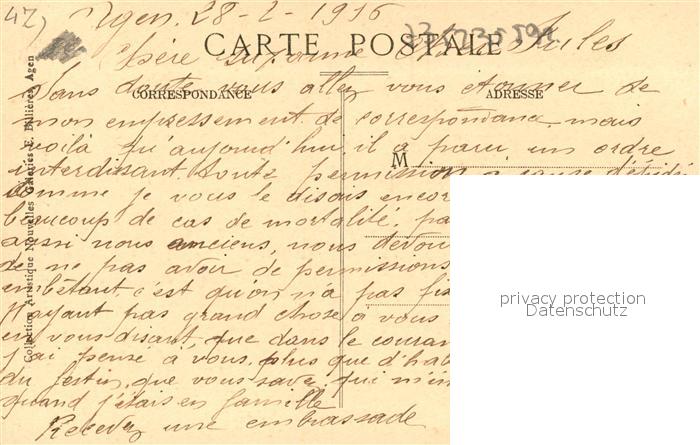 47)
Agen. 28-2-1916
CARTE POSTALE
Chère Suzanne et Jules
Sans doute vous allez vous étonner de
CORRESPONDANCE
ADRESSE
mon empressement de correspondance mais
voilà qu'aujourd'hui il a paru un ordre
M
interdisant toute permission à cause d'épidé
comme je vous le disais encore
beaucoup de cas de mortalité, pa
aussi nous anciens, nous devon
de ne pas avoir de permissions
embêtant c'est qu'on n'a pas fix
N'ayant pas grand chose à vous
en vous disant, que dans le couran
j'ai pensé à vous. plus que d'hab
du festin, que vous savez, qui m'
quand j'étais en famille
Recevez une embrassade
Collection Artistique Nouvelles Galeries F. Billières, Agen
privacy protection
Datenschutz